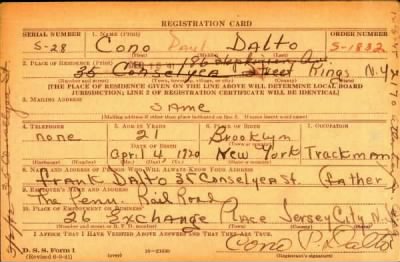 REGISTRATION CARD
SERIAL NUMBER 1. NAME (Print) ORDER NUMBER
S-28 Cono Paul Dalto S-1832
2. PLACE OF RESIDENCE (Print)
35 Conselyea Street Kings N.Y.
[THE PLACE OF RESIDENCE GIVEN ON THE LINE ABOVE WILL DETERMINE LOCAL BOARD
JURISDICTION; LINE 2 OF REGISTRATION CERTIFICATE WILL BE IDENTICAL]
3. MAILING ADDRESS
SAME
[Mailing address if other than place indicated on line 2. If same insert word same]
4. TELEPHONE 5. AGE IN YEARS 6. PLACE OF BIRTH 7. OCCUPATION
none 21 Brooklyn
DATE OF BIRTH
April 4 1920 New York Trackman
8. NAME AND ADDRESS OF PERSON WHO WILL ALWAYS KNOW YOUR ADDRESS
Frank Dalto 35 Conselyea St. (Father
9. EMPLOYER'S NAME AND ADDRESS
The Penn. Rail Road
10. PLACE OF EMPLOYMENT OR BUSINESS
26 Exchange Place Jersey City N.J.
I AFFIRM THAT I HAVE VERIFIED ABOVE ANSWERS AND THAT THEY ARE TRUE.
Cono P. Dalto
D. S. S. Form 1
(Revised 6-9-41) (over) (Registrant's signature)